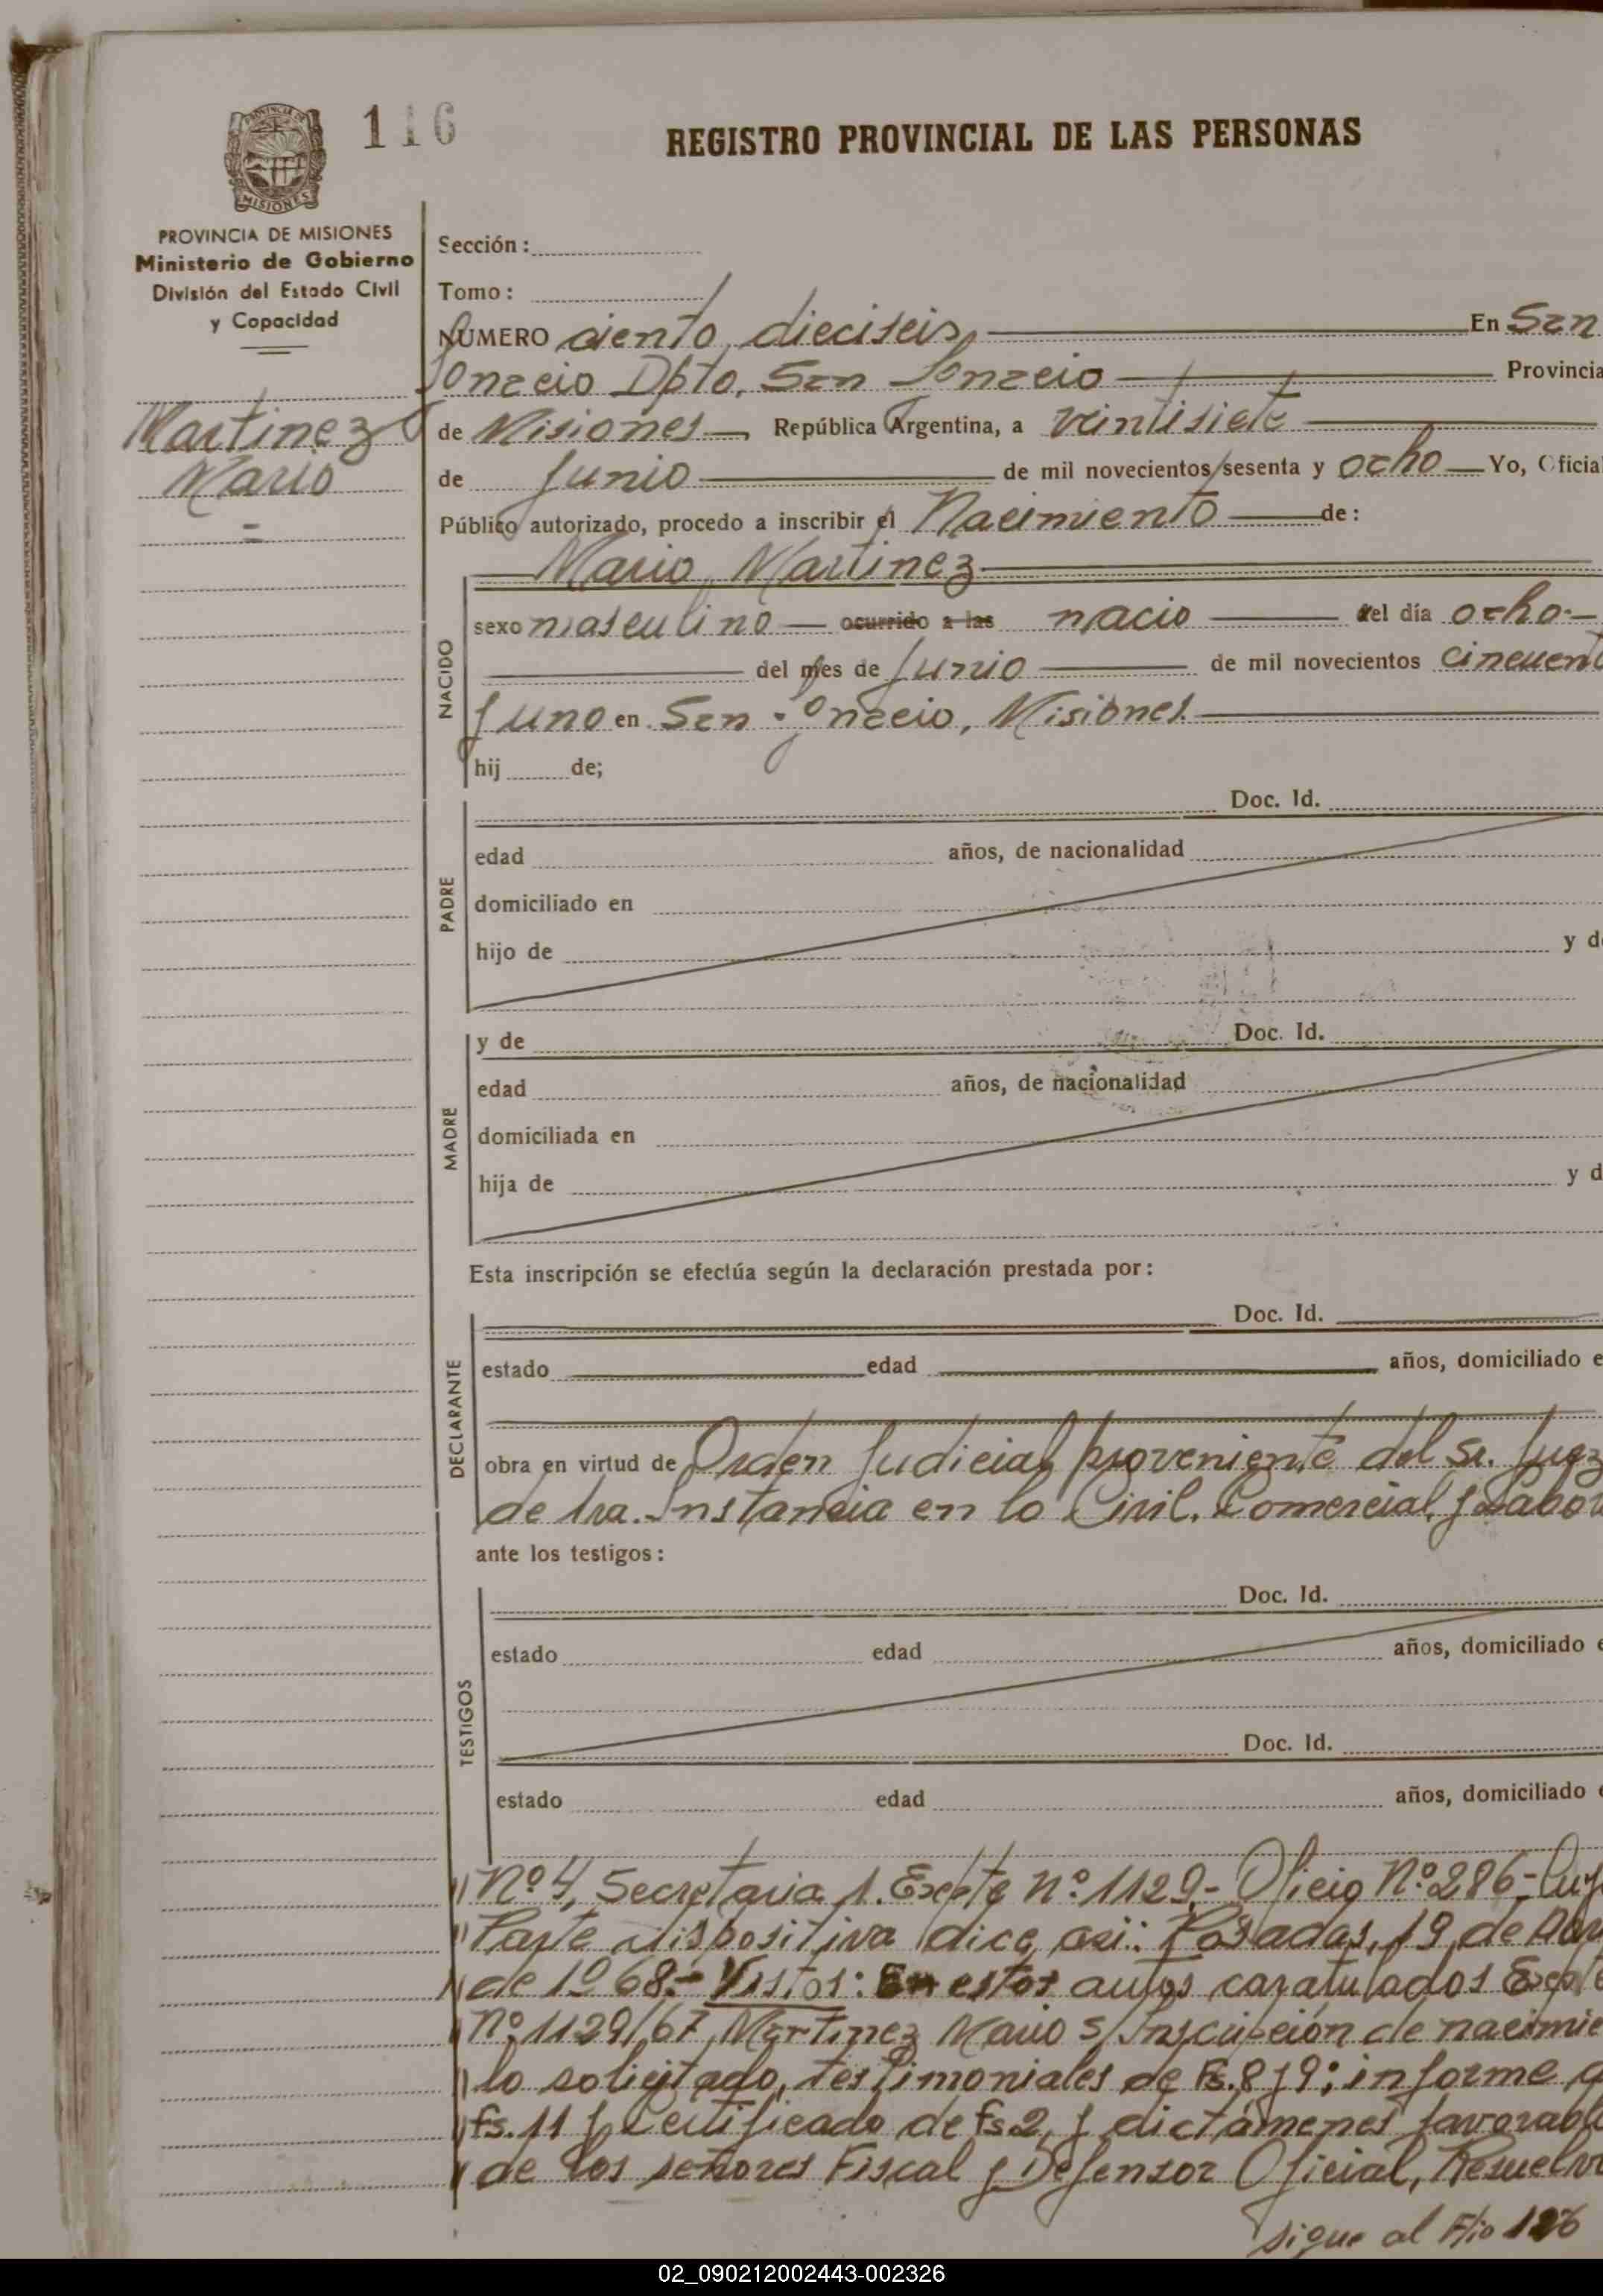 116
REGISTRO PROVINCIAL DE LAS PERSONAS
PROVINCIA DE MISIONES
Ministerio de Gobierno
División del Estado Civil
y Capacidad
Martinez
Mario
Sección:
Tomo:
NUMERO ciento dieciseis En San
Ignacio Dpto. San Ignacio Provincia
de Misiones República Argentina, a veintisiete
de Junio de mil novecientos sesenta y ocho Yo, Oficial
Público autorizado, procedo a inscribir el Nacimiento de:
NACIDO
Mario Martinez
sexo masculino ocurrido a las nacio el día ocho
del mes de Junio de mil novecientos cincuent
y uno en San Ignacio, Misiones
hij de;
PADRE
Doc. Id.
edad años, de nacionalidad
domiciliado en
hijo de y d
MADRE
y de Doc. Id.
edad años, de nacionalidad
domiciliada en
hija de y d
Esta inscripción se efectúa según la declaración prestada por:
DECLARANTE
Doc. Id.
estado edad años, domiciliado e
obra en virtud de Orden Judicial proveniente del Sr. Juez
de 1ra. Instancia en lo Civil, Comercial y Labor
ante los testigos:
TESTIGOS
Doc. Id.
estado edad años, domiciliado e
Doc. Id.
estado edad años, domiciliado
Nº 4, Secretaria 1. Expte Nº 1129.- Oficio Nº 286- Cuy
Parte dispositiva dice asi: Posadas, 19 de
de 1968.- Vistos: En estos autos caratulados Expte
Nº 1129/67 Martinez Mario s/Inscripción de nacimie
lo solicitado, testimoniales de Fs. 8 y 9; informe d
fs. 11 y Certificado de fs 2, y dictámenes favorabl
de los señores Fiscal y Defensor Oficial, Resuelvo
sigue al Flio
02_090212002443-002326